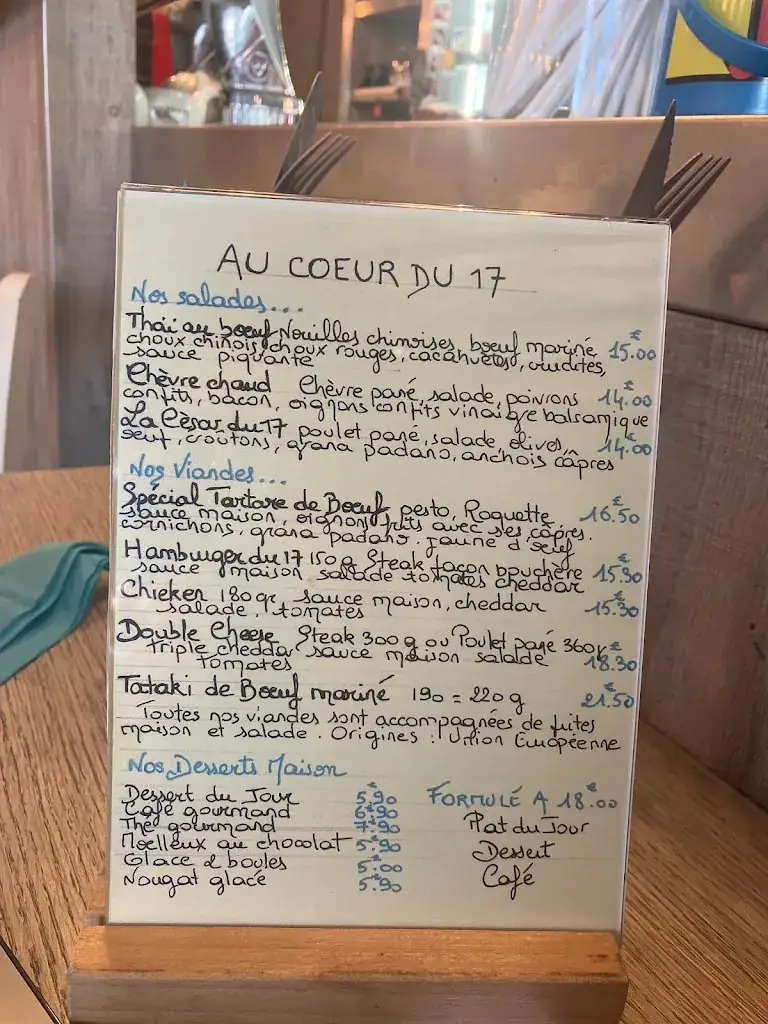 AU COEUR DU 17
Nos salades...
Thaï au boeuf Nouilles chinoises, boeuf mariné
choux chinois, choux rouges, cacahuètes, crudités, 15.00€
sauce piquante
Chèvre chaud Chèvre pané, salade, poivrons 14.00€
confits, bacon, oignons confits vinaigre balsamique
La Cèsar du 17 poulet pané, salade, olives, 14.00€
oeuf, croutons, grana padano, anchois câpres
Nos Viandes...
Spécial Tartare de Boeuf pesto, Roquette 16.50€
sauce maison, oignons frits avec ses câpres.
cornichons, grana padano. jaune d'oeuf
Hamburger du 17 150g Steak façon bouchère 15.30€
sauce maison salade tomates cheddar
Chicken 180gr, sauce maison, cheddar 15.30€
salade, tomates
Double Cheese Steak 300g ou Poulet pané 360g
triple cheddar sauce maison salade 18.30€
tomates
Tataki de Boeuf mariné 190 = 220g 21.50€
Toutes nos viandes sont accompagnées de frites
maison et salade. Origines : Union Européenne
Nos Desserts Maison
Dessert du Jour 5.90€
Café gourmand 6.90€
Thé gourmand 7.90€
Moelleux au chocolat 5.90€
Glace 2 boules 5.00€
Nougat glacé 5.90€
FORMULÉ A 18.00€
Plat du Jour
Dessert
Café